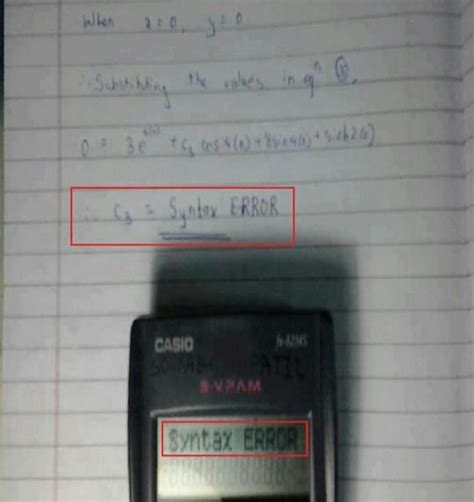 When x=0, y=0
∴ Substituting the values in eqⁿ
0 = 3e + C₃ cos 4(0) + 8 sin 4(0) + sinh 2(0)
∴ C₃ = Syntax ERROR
CASIO fx-82MS
PATIL
S-V.P.A.M.
Syntax ERROR